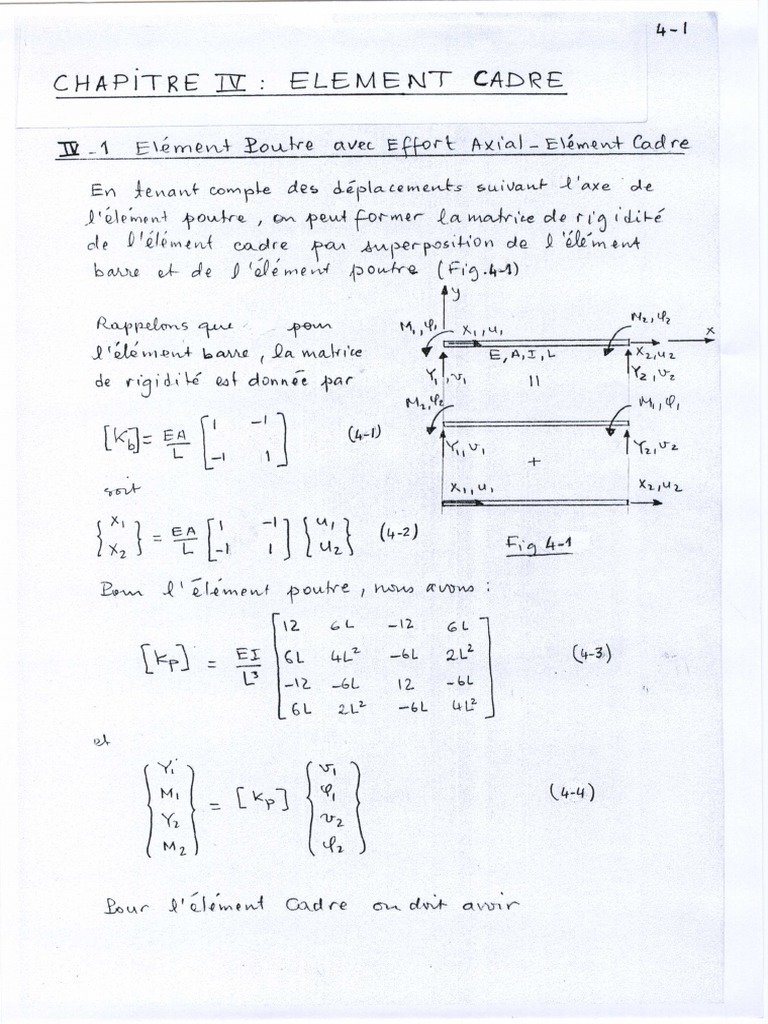 4-1
CHAPITRE IV : ELEMENT CADRE
IV-1 Elément Poutre avec Effort Axial - Elément Cadre
En tenant compte des déplacements suivant l'axe de
l'élément poutre, on peut former la matrice de rigidité
de l'élément cadre par superposition de l'élément
barre et de l'élément poutre (Fig.4-1)
Rappelons que pour
l'élément barre, la matrice
de rigidité est donnée par
[K_b] = EA/L [1 -1
-1 1] (4-1)
soit
{X₁ X₂} = EA/L [1 -1
-1 1] {u₁ u₂} (4-2)
y
M₁,φ₁ X₁,u₁ M₂,φ₂ x
E,A,I,L X₂,u₂
Y₁,v₁ = Y₂,v₂
M₂,φ₂ M₁,φ₁
Y₁,v₁ + Y₂,v₂
X₁,u₁ X₂,u₂
Fig 4-1
Pour l'élément poutre, nous avons :
[K_P] = EI/L³ [12 6L -12 6L
6L 4L² -6L 2L²
-12 -6L 12 -6L
6L 2L² -6L 4L²] (4-3)
et
{Y₁ M₁ Y₂ M₂} = [K_P] {v₁ φ₁ v₂ φ₂} (4-4)
Pour l'élément Cadre on doit avoir